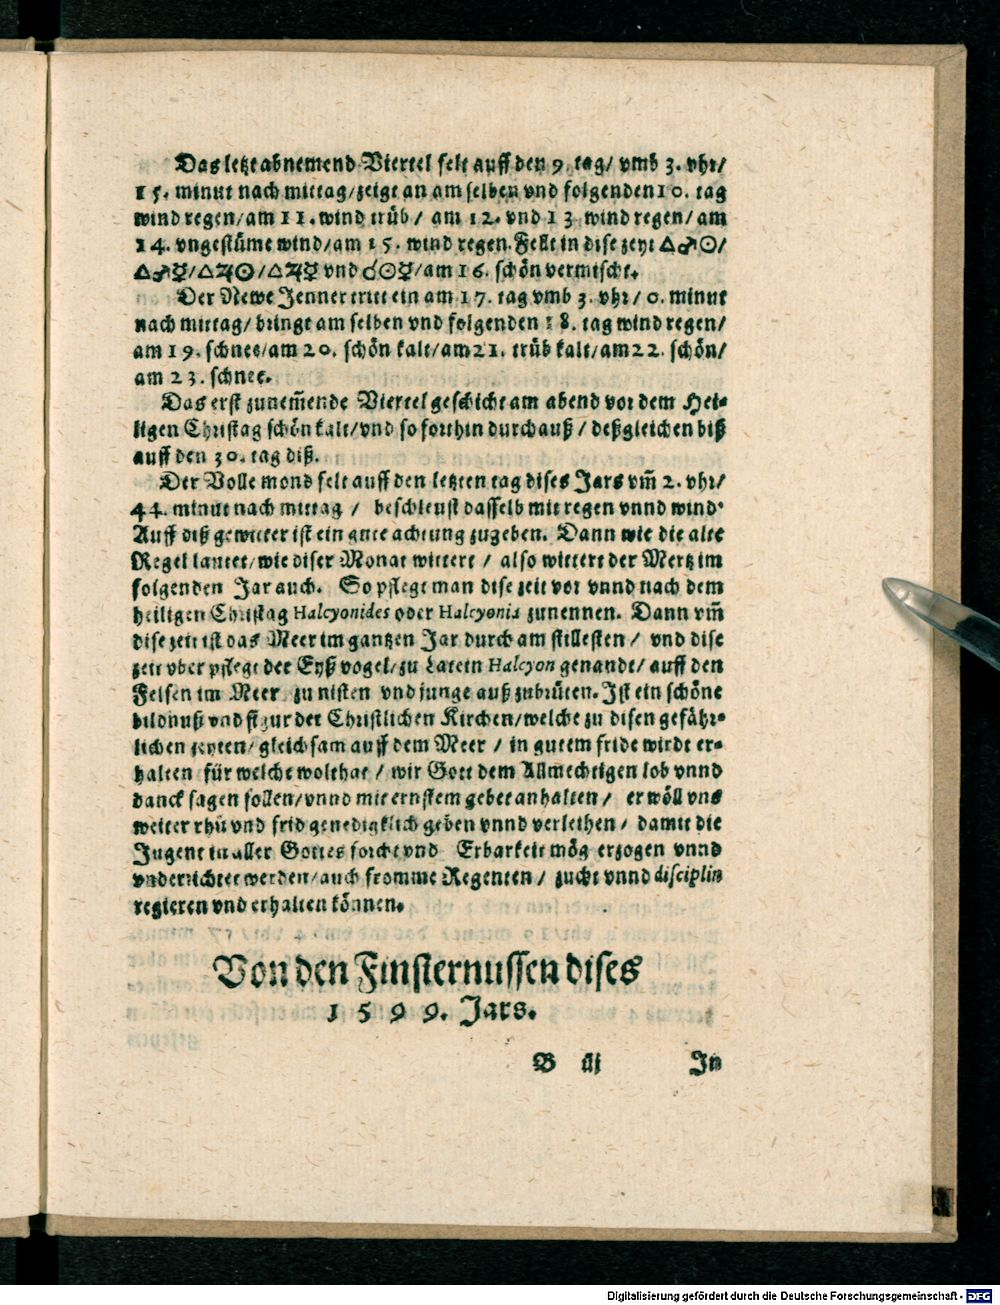 Das letzt abnemend Viertel felt auff den 9. tag/ vmb 3. vhr/
15. minut nach mittag/zeigt an am selben vnd folgenden 10. tag
wind regen/am 11. wind trüb/ am 12. vnd 13 wind regen/ am
14. vngestüme wind/am 15. wind regen. Fellt in dise zeyt △♂☉/
△♂☿/△♃☉/△♃☿ vnd ☌☉☿/am 16. schön vermischt.
Der Newe Jenner tritt ein am 17. tag vmb 3. vhr/ 0. minut
nach mittag/ bringt am selben vnd folgenden 18. tag wind regen/
am 19. schnee/am 20. schön kalt/am 21. trüb kalt/am 22. schön/
am 23. schnee.
Das erst zunem̃ende Viertel geschicht am abend vor dem Hei-
ligen Christag schön kalt/vnd so forthin durchauß/ deßgleichen biß
auff den 30. tag diß.
Der Volle mond felt auff den letzten tag dises Jars vm̃ 2. vhr/
44. minut nach mittag / beschleust dasselb mit regen vnnd wind.
Auff diß gewitter ist ein gute achtung zugeben. Dann wie die alte
Regel lautet/wie diser Monat wittert / also wittert der Mertz im
folgenden Jar auch. So pflegt man dise zeit vor vnnd nach dem
heiligen Christag Halcyonides oder Halcyonia zunennen. Dann vm̃
dise zeit ist das Meer im gantzen Jar durch am stillesten / vnd dise
zeit vber pflegt der Eyß vogel/zu Latein Halcyon genandt/ auff den
Felsen im Meer zu nisten vnd junge auß zubrüten. Ist ein schöne
bildnuß vnd figur der Christlichen Kirchen/welche zu disen gefähr-
lichen zeyten/gleichsam auff dem Meer / in gutem fride wirdt er-
halten für welche wolthat / wir Gott dem Allmechtigen lob vnnd
danck sagen sollen/vnnd mit ernstem gebet anhalten/ er wöll vns
weiter rhů vnd frid genedigklich geben vnnd verleihen / damit die
Jugent in aller Gottes forcht vnd Erbarkeit mög erzogen vnnd
vnderrichtet werden/auch fromme Regenten / zucht vnnd disciplin
regieren vnd erhalten können.
Von den Finsternussen dises
1599. Jars.
B iij In
Digitalisierung gefördert durch die Deutsche Forschungsgemeinschaft - DFG